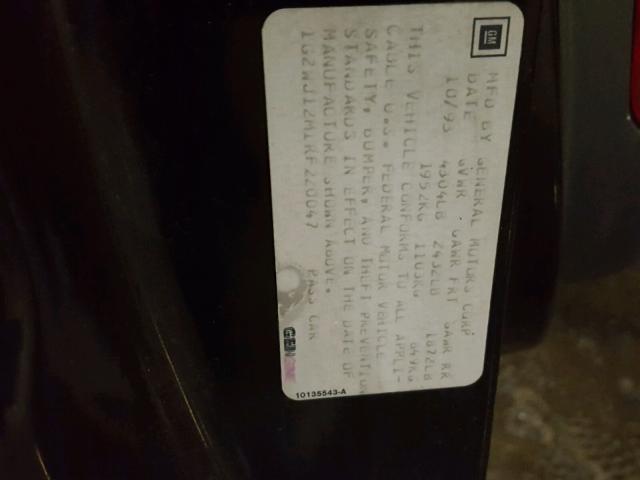 GM
MFD BY GENERAL MOTORS CORP
DATE GVWR GAWR FRT GAWR RR
10/93 4304LB 2432LB 1872LB
1952KG 1103KG 849KG
THIS VEHICLE CONFORMS TO ALL APPLI-
CABLE U.S. FEDERAL MOTOR VEHICLE
SAFETY, BUMPER, AND THEFT PREVENTION
STANDARDS IN EFFECT ON THE DATE OF
MANUFACTURE SHOWN ABOVE.
1G2WJ12M1RF220047 PASS CAR
10135543-A